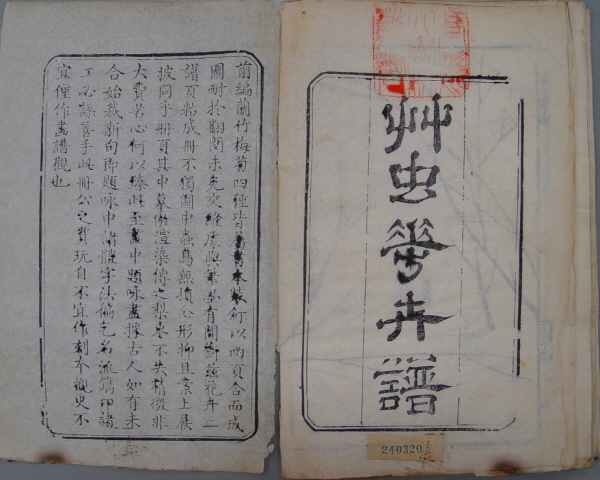 艸虫華卉譜
240320
前編蘭竹梅菊四種皆書本裝訂以兩頁合而成
圖耐於翻閱未免交縫處與筆墨有間斷茲花卉二
譜頁粘成冊不獨圖中蟲鳥無損全形抑且案上展
披同乎冊頁其中摹倣渲染傳之梨棗不失精微非
大費苦心何以臻此至畫中題咏盡採古人如有未
合始裁新句即題咏中諸體字法徧乞名流鐫印諸
工必謀善手此冊公之賞玩自不宜作刻本觀更不
宜僅作畫譜觀也